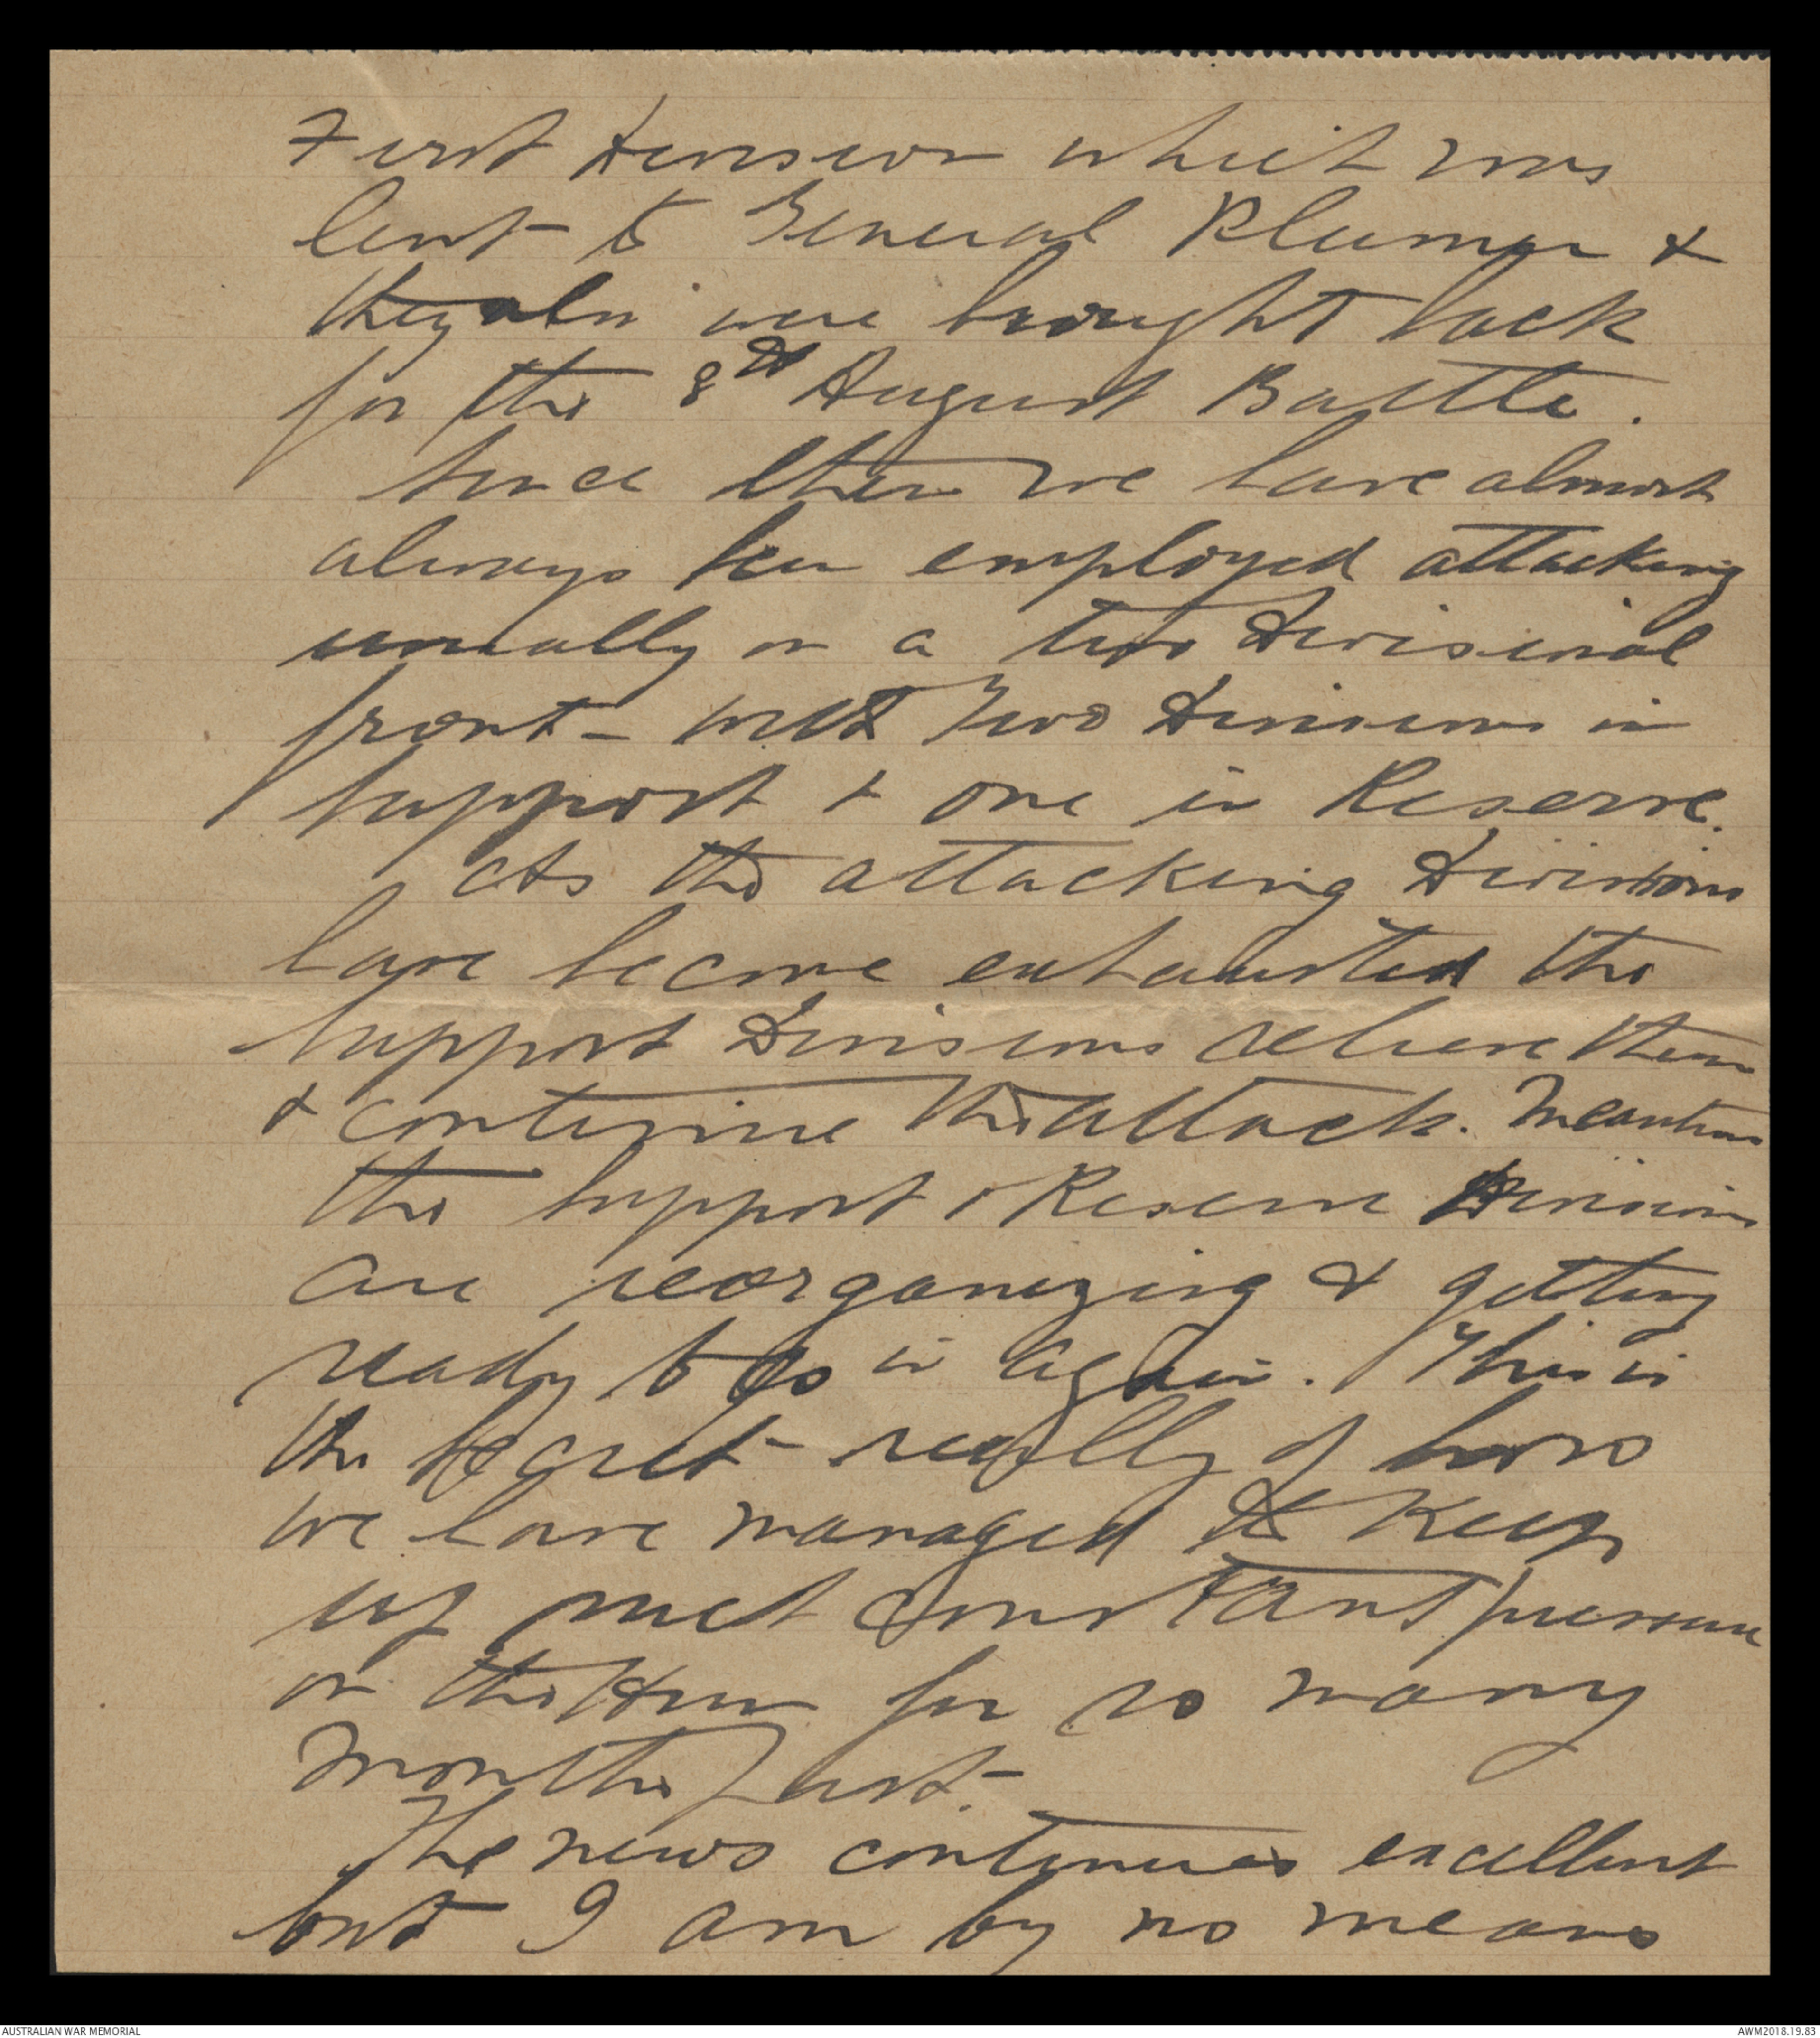 First Division which was
lent to General Plumer &
they also were brought back
for the 8th August Battle.
Since then we have almost
always been employed attacking
usually on a two Divisional
front - with Two Divisions in
support & one in Reserve.
As the attacking Divisions
have become exhausted the
support Divisions relieve them
& continue the attack. Meantime
the support & Reserve Divisions
are reorganizing & getting
ready to go in again. This is
the secret really of how
we have managed to keep
up such constant pressure
on the Hun for so many
months past.
The news continues excellent
but I am by no means
AUSTRALIAN WAR MEMORIAL
AWM2018.19.83